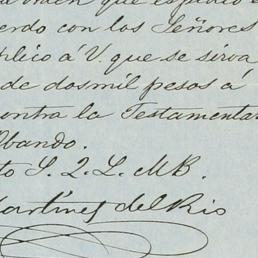 a orden que
erdo con los Señores
plico á V. que se sirva
de dosmil pesos á
contra la Testamentar
Obando.
to S. Q. L. M B.
Martinez del Rio